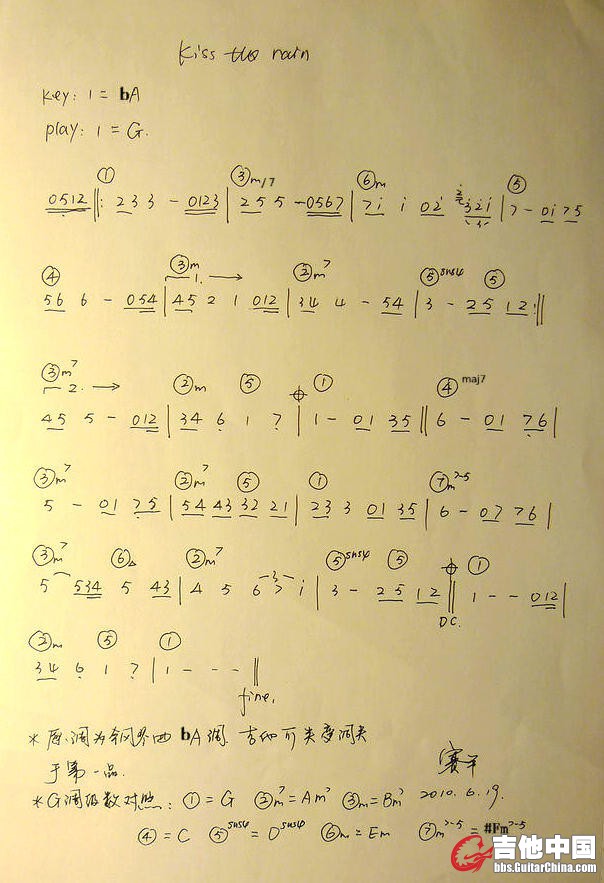 Kiss the rain
key: 1 = bA
play: 1 = G.
① ③m/7 ⑥m ⑤
0512 ‖: 2 3 3 - 0123 | 2 5 5 - 0567 | 7 i i 0 2 i 3 2 i | 7 - 0 i 7 5
④ ③m 1. → ②m⁷ ⑤sus4 ⑤
5 6 6 - 0 5 4 | 4 5 2 1 0 1 2 | 3 4 4 - 5 4 | 3 - 2 5 1 2 :‖
③m⁷ 2. → ②m ⑤ ① ④maj7
4 5 5 - 0 1 2 | 3 4 6 1 7 | 1 - 0 1 3 5 ‖ 6 - 0 1 7 6 |
③m⁷ ②m⁷ ⑤ ① ⑦m⁷⁻⁵
5 - 0 1 7 5 | 5 4 4 3 3 2 2 1 | 2 3 3 0 1 3 5 | 6 - 0 7 7 6 |
③m⁷ ⑥△ ②m⁷ ⑤sus4 ⑤ ①
5 5 3 4 5 4 3 | 4 5 6 7 i | 3 - 2 5 1 2 ‖ 1 - - 0 1 2 |
D.C.
②m ⑤ ①
3 4 6 1 7 | 1 - - - ‖
fine.
* 原调为 bA调. 吉他可变调夹
于第一品.
* G调级数对照: ① = G ②m⁷ = Am⁷ ③m⁷ = Bm⁷
2010.6.19.
④ = C ⑤sus4 = Dsus4 ⑥m = Em ⑦m⁷⁻⁵ = #Fm⁷⁻⁵
吉他中国
bbs.GuitarChina.com